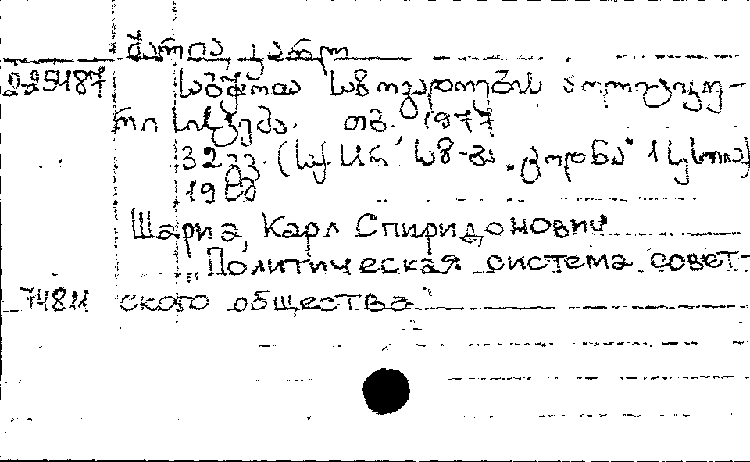 შარია, კარლ
225187 საბჭოთა საზოგადოების პოლიტიკუ-
რი სისტემა. თბ. 1977
32 გვ. (საქ. სსრ საზ-ბა „ცოდნა“
Шариа, Карл Спиридонович
„Политическая система совет-
74811 ского общества“